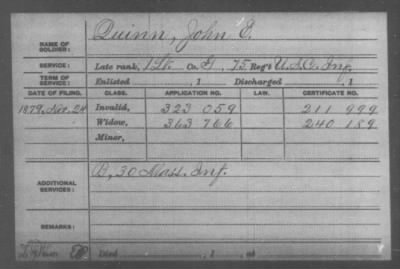 NAME OF SOLDIER: Quinn, John E.
SERVICE: Late rank, 1 Lt. Co. G, 75 Reg't U.S.C. Inf.
TERM OF SERVICE: Enlisted , 1 Discharged , 1
DATE OF FILING. CLASS. APPLICATION NO. LAW. CERTIFICATE NO.
1879, Nov. 24 Invalid, 323 059 211 999
Widow, 363 766 240 189
Minor,
ADDITIONAL SERVICES: B, 30 Mass. Inf.
REMARKS:
Died , 1 , at